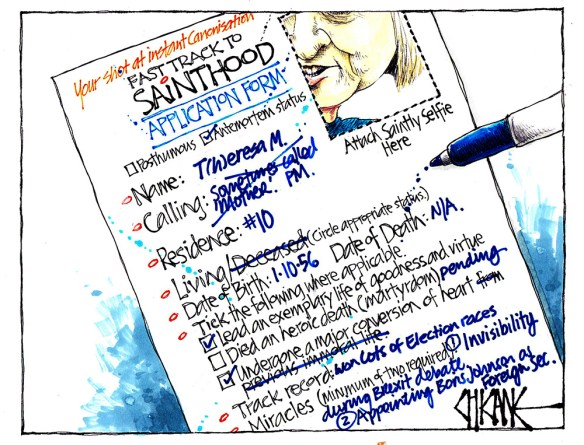 Your shot at instant Canonisation
FAST TRACK TO
SAINTHOOD
APPLICATION FORM
Posthumous Antemortem status
Attach Saintly Selfie
Here
Name: T(h)eresa M.
Calling: sometimes called
mother. PM.
Residence: #10
Living / Deceased (Circle appropriate status.)
Date of Birth: 1·10·56 Date of Death: N/A.
Tick the following where applicable.
Lead an exemplary life of goodness and virtue
Died an heroic death (martyrdom) pending
Undergone a major conversion of heart from
Previous immoral life.
Track record: Won lots of Election races
Miracles (minimum of two required) ① Invisibility
during Brexit debate
② Appointing Boris Johnson as
Foreign Sec.